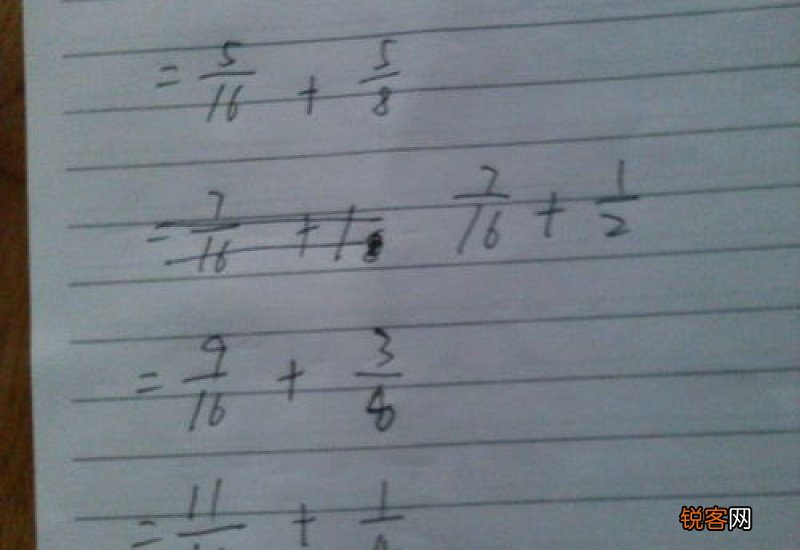 = 5/16 + 5/8
7/16 + 1/2
= 9/16 + 3/8
= 11/ + 1/
锐客网